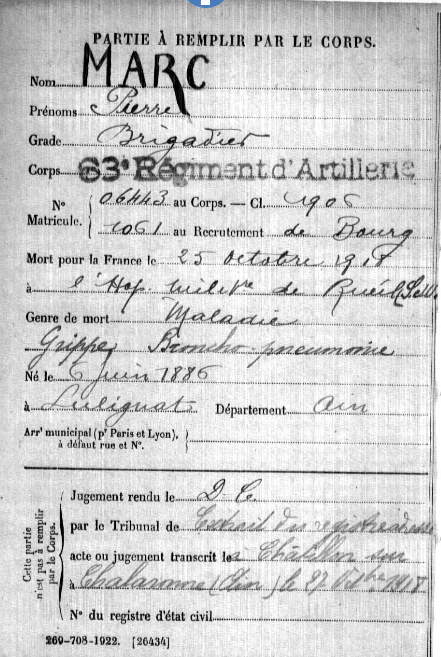 PARTIE À REMPLIR PAR LE CORPS.
Nom MARC
Prénoms Pierre
Grade Brigadier
Corps 83e Régiment d'Artillerie
N° Matricule. { 06443 au Corps. — Cl. 1906
1061 au Recrutement de Bourg
Mort pour la France le 25 octobre 1918
à l'Hop. milit.re de Rueil (S.et O.
Genre de mort Maladie
Grippe Broncho-pneumonie
Né le 6 juin 1886
à Sulignat Département Ain
Arrt municipal (pr Paris et Lyon), à défaut rue et N°.
Cette partie n'est pas à remplir par le Corps.
Jugement rendu le D C
par le Tribunal de Extrait du registre
acte ou jugement transcrit le à Chatillon sur
à Chalaronne (Ain) le 27 1918
N° du registre d'état civil
269-708-1922. [26434]